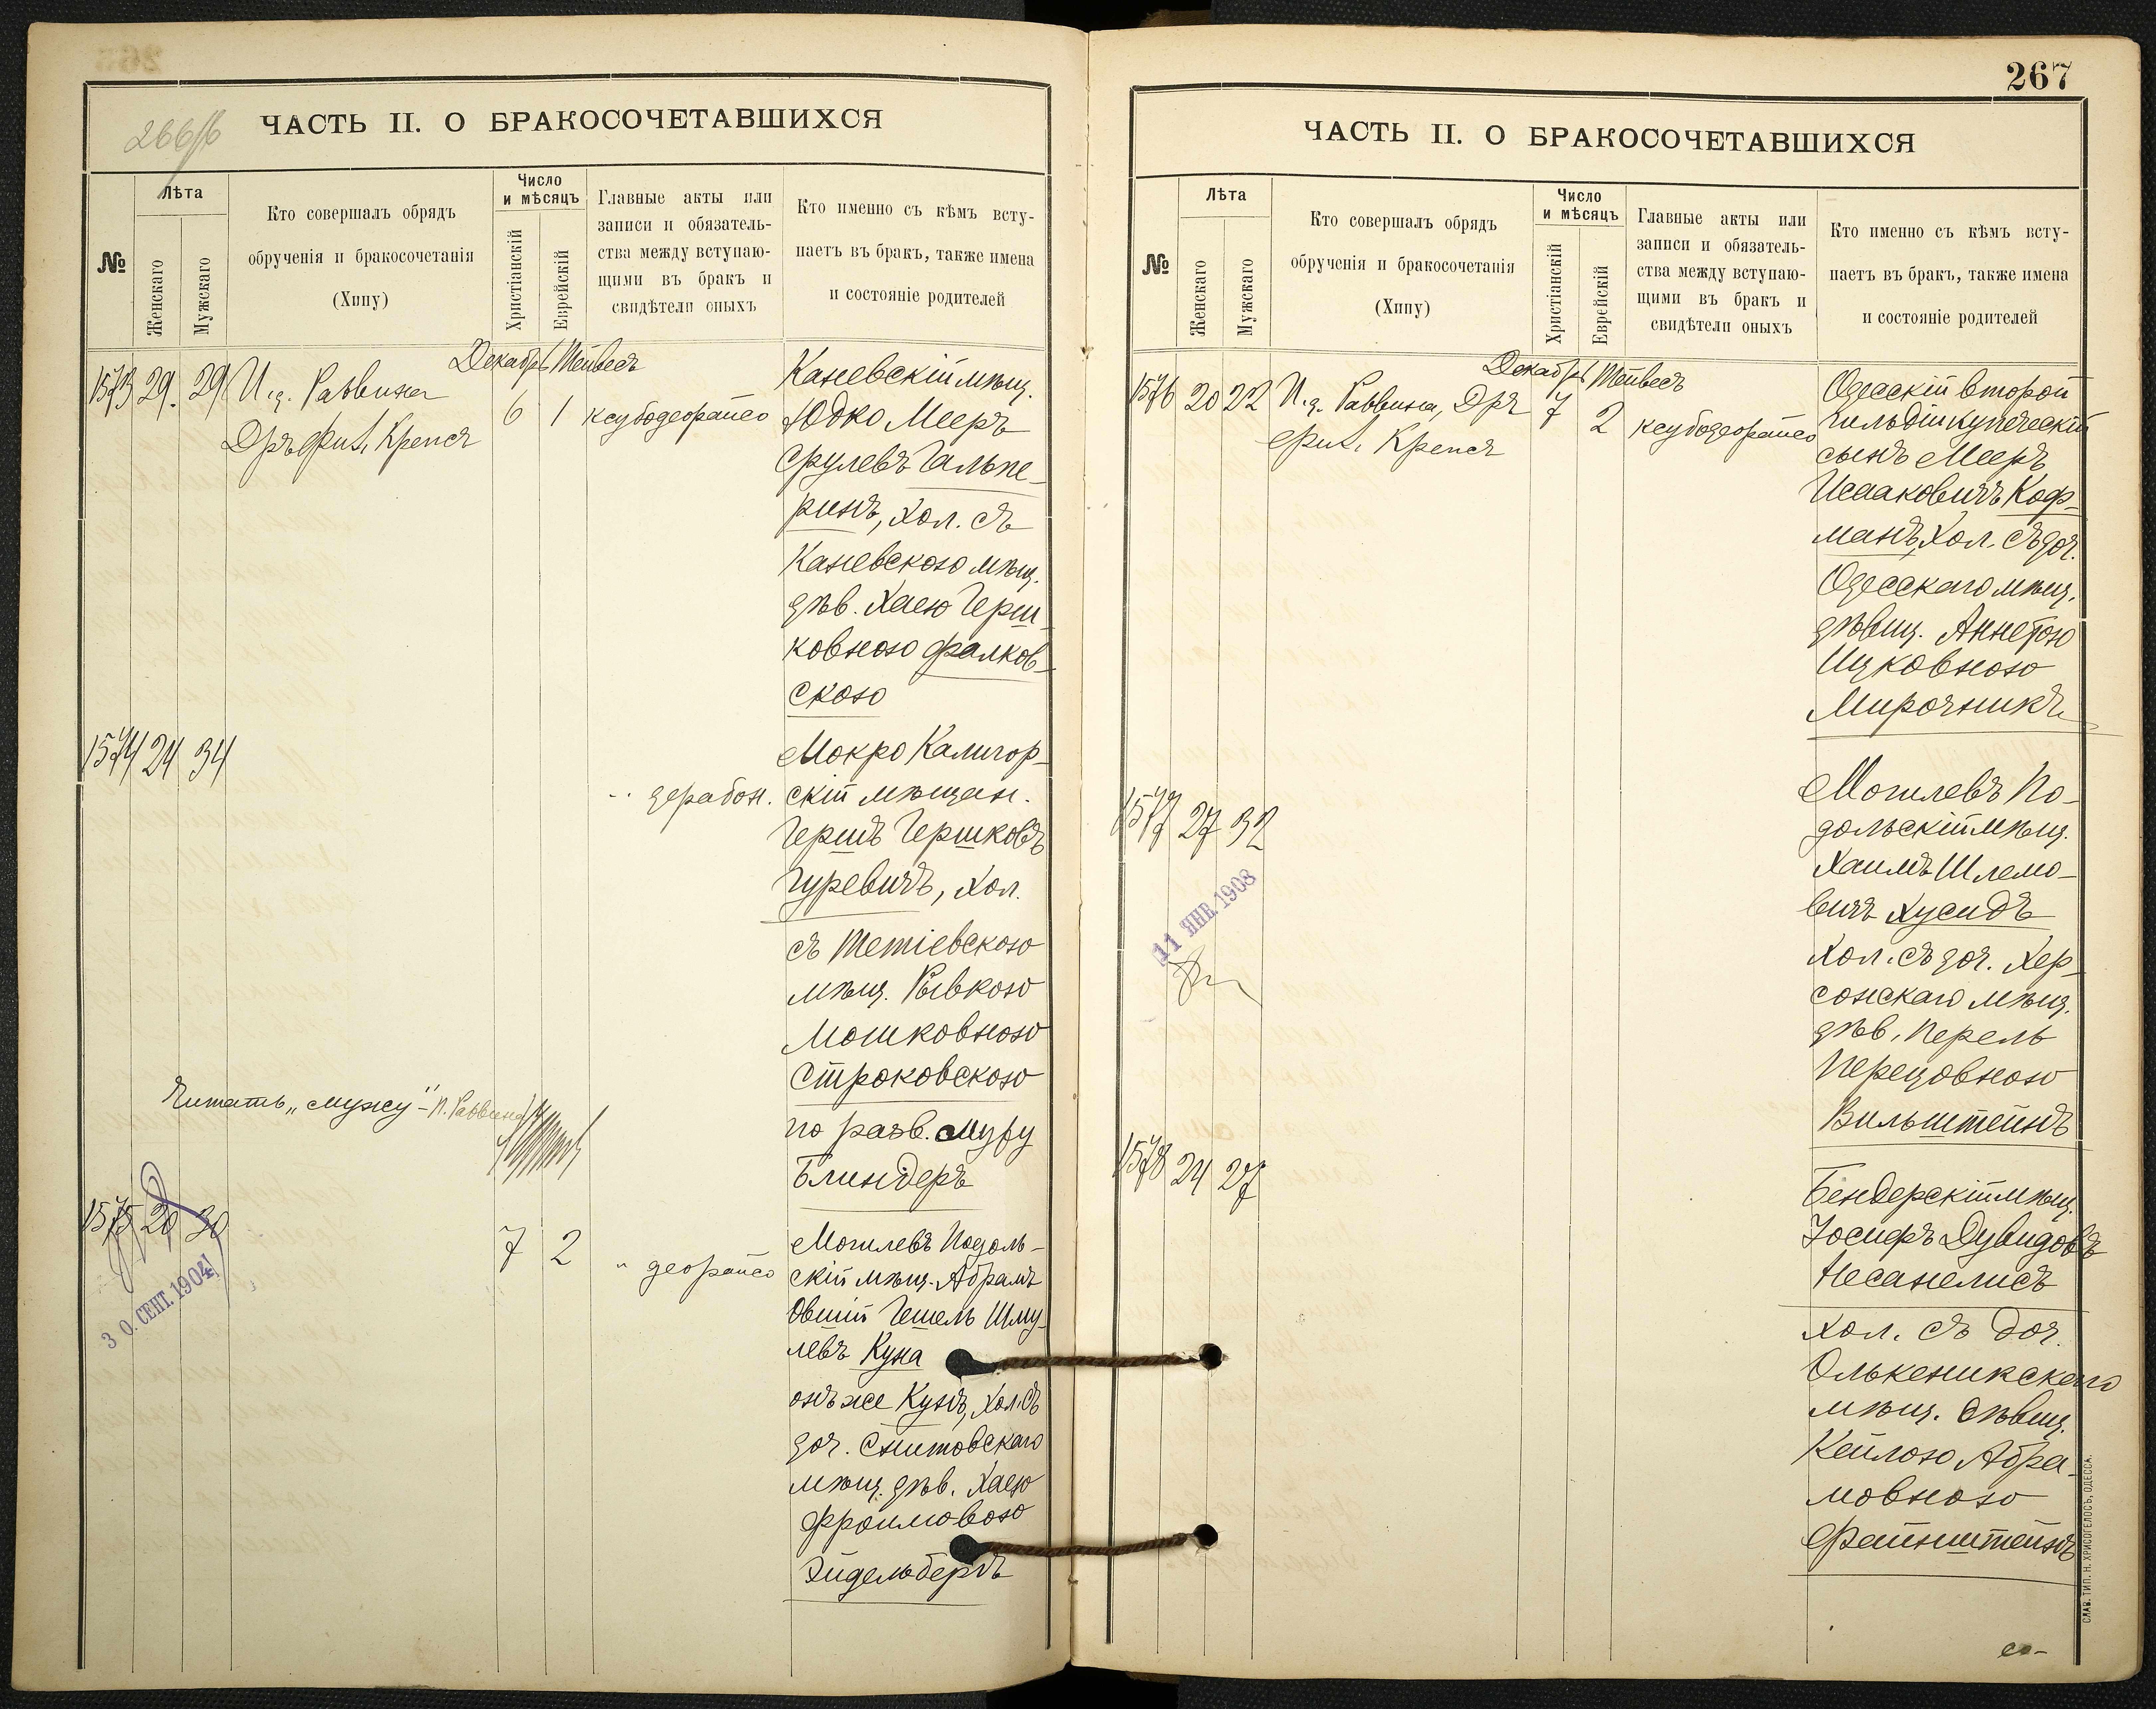 266/б
ЧАСТЬ II. О БРАКОСОЧЕТАВШИХСЯ
№
Лѣта
Женскаго
Мужскаго
Кто совершалъ обрядъ
обрученія и бракосочетанія
(Хипу)
Число
и мѣсяцъ
Христіанскій
Еврейскій
Главные акты или
записи и обязатель-
ства между вступаю-
щими въ бракъ и
свидѣтели оныхъ
Кто именно съ кѣмъ всту-
паетъ въ бракъ, также имена
и состояніе родителей
Декабрь Тейвесъ
1573 29. 29 И. д. Раввина
Дръ Фил. Крепсъ
6 1 ксубодеорайсо
Каневскій мѣщ.
Юдко Мееръ
Срулевъ Гальпе-
ринъ, хол. съ
Каневскою мѣщ.
дѣв. Хаею Герш-
ковною Фалков-
скою
1574 24 34
" дерабон.
Мокро Калигор-
скій мѣщан.
Гершъ Гершковъ
Гуревичъ, хол.
съ Тетіевскою
мѣщ. Рывкою
Мошковною
Строковскою
по разв. мужу
Блиндеръ
Читать „мужу" - И. Раввина
1575 20 30
7 2
" деорайсо
30. СЕНТ. 1904
Могилевъ Подоль-
скій мѣщ. Абрамъ
Овшій Гешель Шму-
левъ Куна
онъ же Кунъ, хол. съ
доч. Снитовскаго
мѣщ. дѣв. Хаею
Фроимовою
Эйдельбергъ
267
ЧАСТЬ II. О БРАКОСОЧЕТАВШИХСЯ
№
Лѣта
Женскаго
Мужскаго
Кто совершалъ обрядъ
обрученія и бракосочетанія
(Хипу)
Число
и мѣсяцъ
Христіанскій
Еврейскій
Главные акты или
записи и обязатель-
ства между вступаю-
щими въ бракъ и
свидѣтели оныхъ
Кто именно съ кѣмъ всту-
паетъ въ бракъ, также имена
и состояніе родителей
Декабрь Тейвесъ
1576 20 22 И. д. Раввина, Дръ
Фил. Крепсъ
7 2 ксубодеорайсо
Одесскій второй
гильдіи купеческій
сынъ Мееръ
Исааковичъ Коф-
манъ, хол. съ доч.
Одесскаго мѣщ.
дѣвиц. Аннетою
Ицковною
Мирочникъ
1577 27 32
11 ЯНВ. 1908
Могилевъ По-
дольскій мѣщ.
Хаимъ Шлемо-
вичъ Хусидъ
хол. съ доч. Хер-
сонскаго мѣщ.
дѣв. Перель
Перецовною
Вильштейнъ
1578 24 27
Бендерскій мѣщ.
Іосифъ Дувидовъ
Несанелисъ
хол. съ доч.
Олькеникскаго
мѣщ. дѣвиц.
Кейлою Абра-
мовною
Файнштейнъ
со-
СЛАВ. ТИП. Н. ХРИСОГЕЛОСЪ, ОДЕССА.